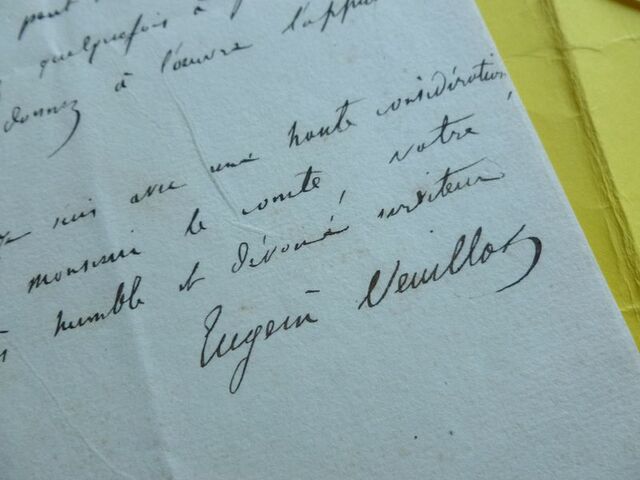 peut
quelquefois à
donnez à l'œuvre l'appui
suis avec une haute considération
monsieur le comte, votre
humble et dévoué serviteur
Eugène Veuillot